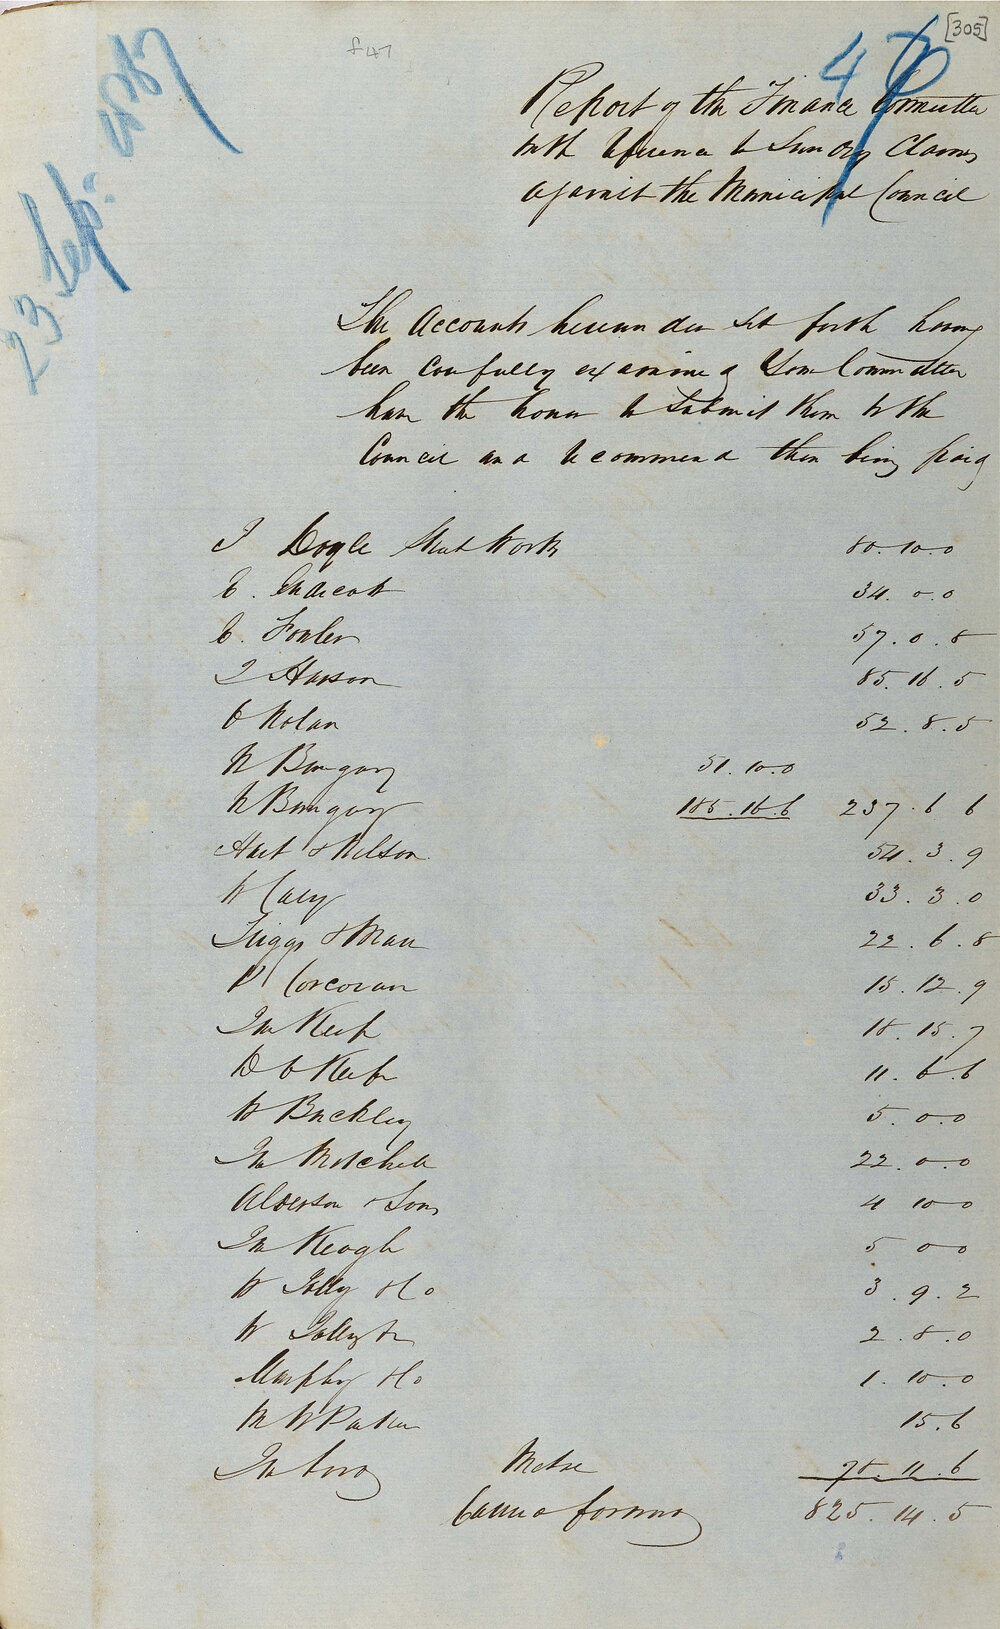 [305]
f 47
47
23 Sep: 1857
Report of the Finance Committee
with reference to Sundry Claims
against the Municipal Council
The Accounts hereunder set forth having
been carefully examined Your Committee
have the honor to submit them to the
Council and recommend them being paid
J Doyle Street Works 80. 10. 0
C. Endicott 34. 0. 0
C. Fowler 57. 0. 8
J Hanson 85. 16. 5
O Nolan 52. 8. 5
W Bumgary 51. 10. 0
W Bumgary 185. 16. 6 237. 6 6
Hart & Wilson 54. 3. 9
W Cary 33. 3. 0
Triggs & Marr 22. 6. 8
P Corcoran 15. 12. 9
Jno Keefe 18. 15. 7
D O Keefe 11. 6. 6
W Buckley 5. 0. 0
Jno Mitchell 22. 0. 0
Alderson & Sons 4 10 0
Jno Keogh 5 0 0
W Jolly & Co 3. 9. 2
W Jolly 2. 8. 0
Murphy & Co 1. 10. 0
M W Parker 15. 6
Jno Metal 78. 11. 6
Carried forward 825. 14. 5